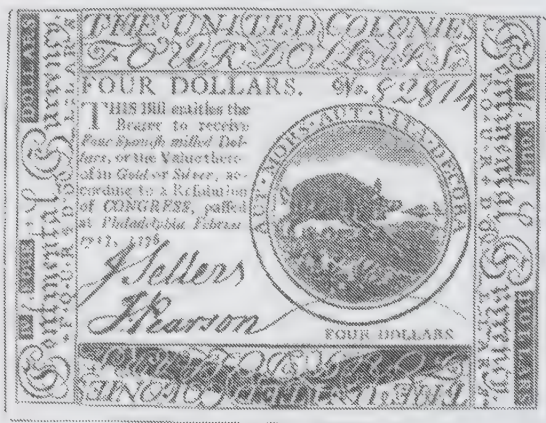 THE UNITED COLONIES
FOUR DOLLARS.
FOUR DOLLARS. No. 82814
THIS Bill entitles the
Bearer to receive
Four Spanish milled Dol-
lars, or the Value there-
of in Gold or Silver, ac-
cording to a Resolution
of CONGRESS, passed
at Philadelphia Februa-
ry 17, 1776.
J Sellers
J. Pearson
AUT MORS AUT VITA DECORA
FOUR DOLLARS
Continental Currency
FOUR DOLLARS
Continental Currency
FOUR DOLLARS
THE UNITED COLONIES